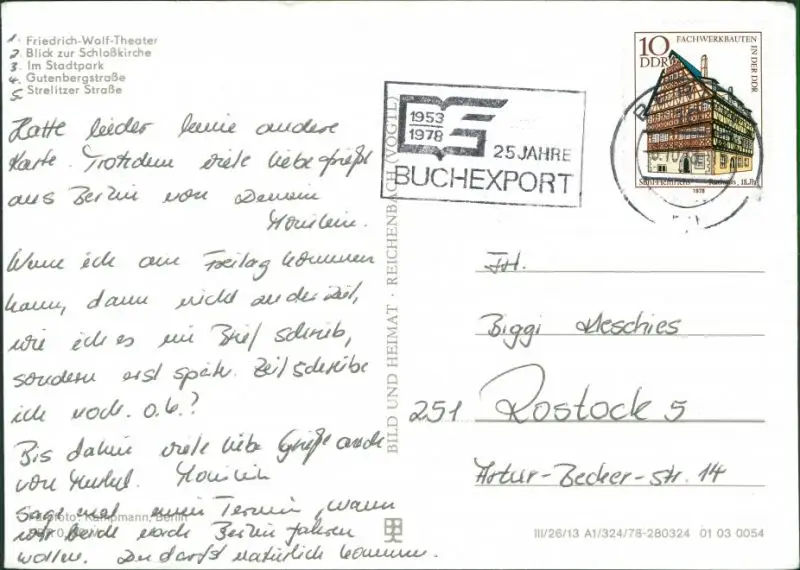 1. Friedrich-Wolf-Theater
2. Blick zur Schloßkirche
3. Im Stadtpark
4. Gutenbergstraße
5. Strelitzer Straße
Hatte leider keine andere
Karte. Trotzdem viele liebe Grüße
aus Berlin von Deinem
Wenn ich am Freitag kommen
kann, dann nicht zu der Zeit,
wie ich es im Brief schrieb,
sondern erst später. Zeit schreibe
ich noch. o.k.?
Bis dahin viele liebe Grüße auch
von
Sage mal einen Termin, wann
wir beide nach Berlin fahren
wollen. Du darfst natürlich kommen.
Farbfoto: Kampmann, Berlin
BILD UND HEIMAT · REICHENBACH (VOGTL)
1953
1978
25 JAHRE
BUCHEXPORT
10
DDR
FACHWERKBAUTEN
IN DER DDR
Rathaus, 18. Jh.
1978
Frl.
Biggi Meschies
251 Rostock 5
Artur-Becker-Str. 14
III/26/13 A1/324/76-280324 01 03 0054